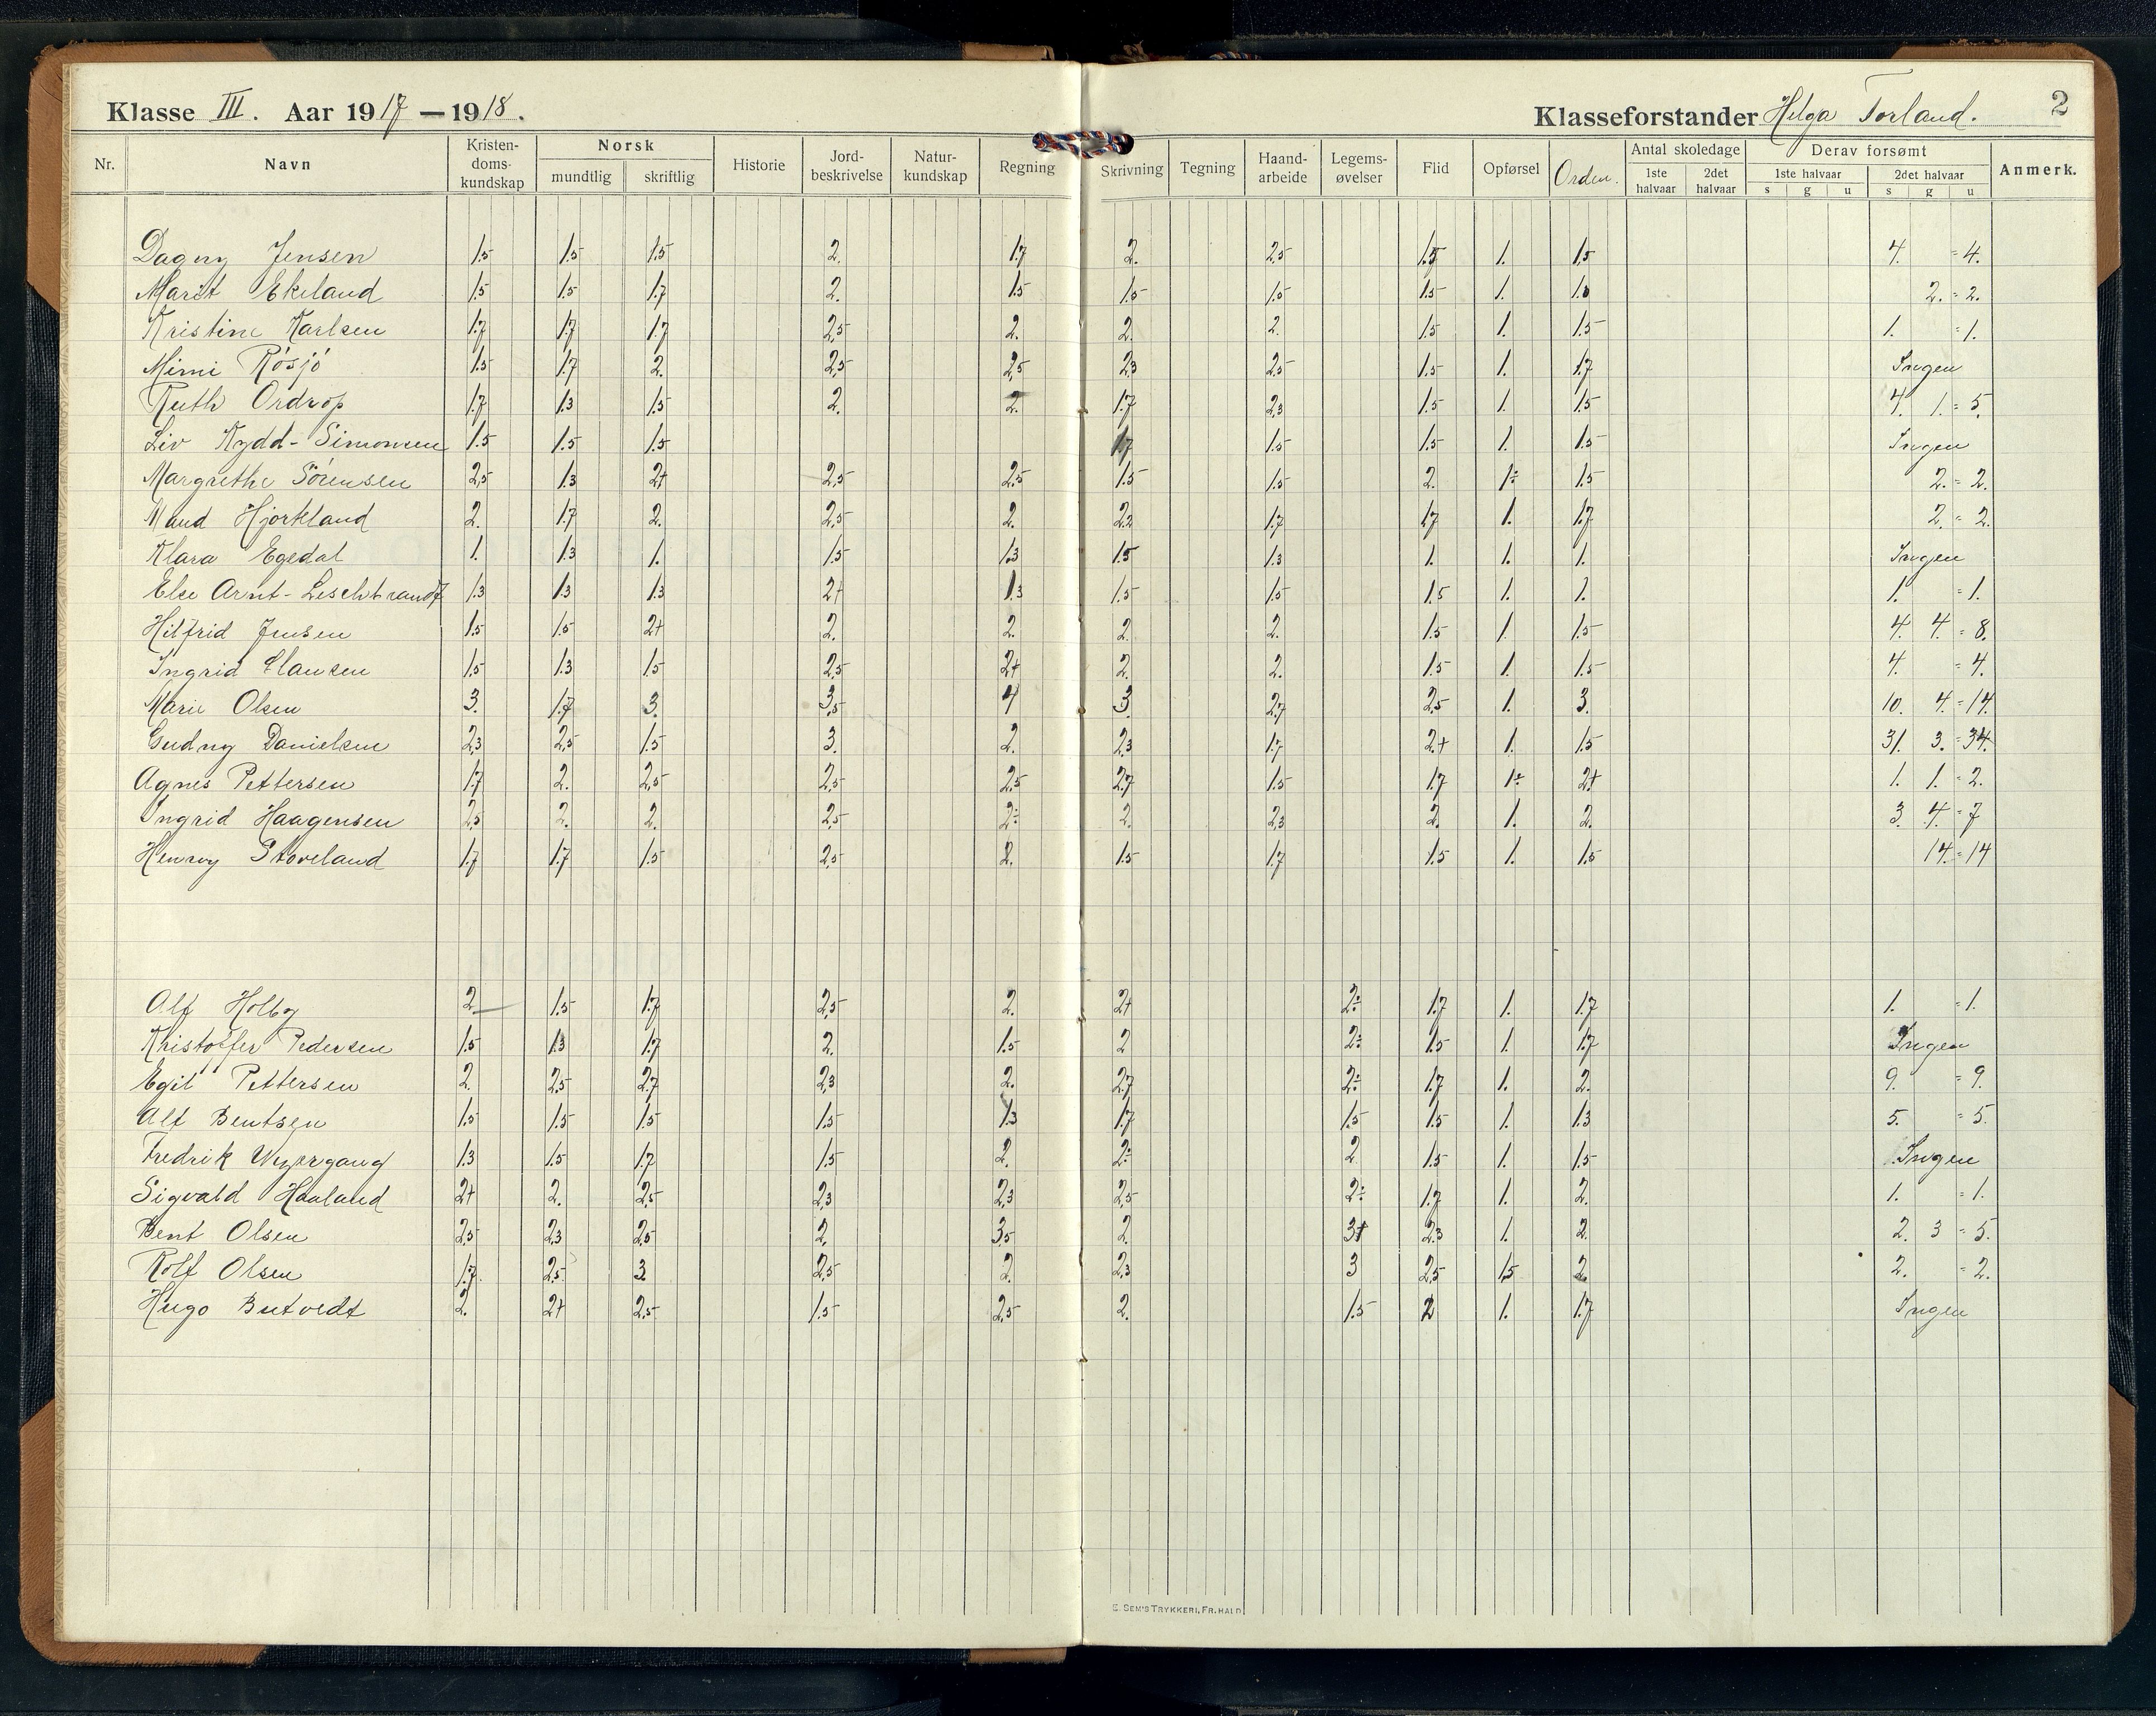 Klasse III. Aar 1917 — 1918.
Klasseforstander Helga Torland. 2
Nr. Navn Kristendomskundskap Norsk mundtlig skriftlig Historie Jordbeskrivelse Naturkundskap Regning Skrivning Tegning Haandarbeide Legemsøvelser Flid Opførsel Orden. Antal skoledage 1ste halvaar 2det halvaar Derav forsømt 1ste halvaar s g u 2det halvaar s g u Anmerk.
Dagny Jensen 1.5 1.5 1.5 2. 1.7 2. 2.5 1.5 1. 1.5 4. = 4.
Marit Ekeland 1.5 1.5 1.7 2. 1.5 1.5 1.5 1.5 1. 1.5 2. = 2.
Kristine Karlsen 1.7 1.7 1.7 2.5 2. 2. 2. 1.5 1. 1.5 1. = 1.
Mimi Røsjø 1.5 1.7 2. 2.5 2.5 2.3 2.5 1.5 1. 1.7 Ingen
Ruth Ordrop 1.7 1.3 1.5 2. 2. 1.7 2.3 1.5 1. 1.5 4. 1. = 5.
Liv Kydd-Simonsen 1.5 1.5 1.5 1.7 1.5 1.5 1. 1.5 Ingen
Margrethe Sørensen 2.5 1.3 2+ 2.5 2.5 1.5 1.5 2. 1÷ 1.5 2. = 2.
Maud Hjorkland 2. 1.7 2. 2.5 2. 2.2 1.7 1.7 1. 1.7 2. = 2.
Klara Egedal 1. 1.3 1. 1.5 1.3 1.5 1.3 1. 1. 1. Ingen
Else Arnt-Leschbrandt 1.3 1.3 1.3 2+ 1.3 1.5 1.5 1.5 1. 1. 1. = 1.
Hilfrid Jensen 1.5 1.5 2+ 2. 2. 2. 2. 1.5 1. 1.5 4. 4. = 8.
Ingrid Clausen 1.5 1.3 1.5 2.5 2+ 2. 2. 1.5 1. 1.5 4. = 4.
Marie Olsen 3. 1.7 3. 3.5 4 3. 2.7 2.5 1. 3. 10. 4. = 14.
Gudny Danielsen 2.3 2.5 1.5 3. 2. 2.3 1.7 2.+ 1. 1.5 31. 3. = 34.
Agnes Pettersen 1.7 2. 2.5 2.5 2.5 2.7 1.5 1.7 1÷ 2+ 1. 1. = 2.
Ingrid Haagensen 2.5 2. 2. 2.5 2÷ 2. 2.3 2. 1. 2. 3. 4. = 7
Henny Stoveland 1.7 1.7 1.5 2.5 2. 1.5 1.7 1.5 1. 1.5 14. = 14
Alf Holby 2. 1.5 1.7 2.5 2. 2+ 2÷ 1.7 1. 1.7 1. = 1.
Khistoffer Pedersen 1.5 1.3 1.7 2. 1.5 2 2÷ 1.5 1. 1.7 Ingen
Egil Pettersen 2. 2.5 2.7 2.3 2. 2.7 2÷ 1.7 1. 2. 9. = 9.
Alf Bentsen 1.5 1.5 1.5 1.5 1.3 1.7 1.5 1.5 1. 1.3 5. = 5.
Fredrik 1.3 1.5 1.7 1.5 2. 2÷ 2 1.5 1. 1.5 Ingen
Sigvald Haaland 2+ 2. 2.5 2.3 2.3 2.5 2÷ 1.7 1. 2. 1. = 1.
Bent Olsen 2.5 2.3 2.5 2. 3.5 2. 3+ 2.3 1. 2. 2. 3 = 5.
Rolf Olsen 1.7 2.5 3 2.5 2. 2.3 3 2.5 1.5 2 2. = 2.
Hugo Butvedt 2. 2+ 2.5 1.5 2.5 2. 1.5 2 1. 1.7 Ingen
E. SEM'S TRYKKERI, FR.HALD